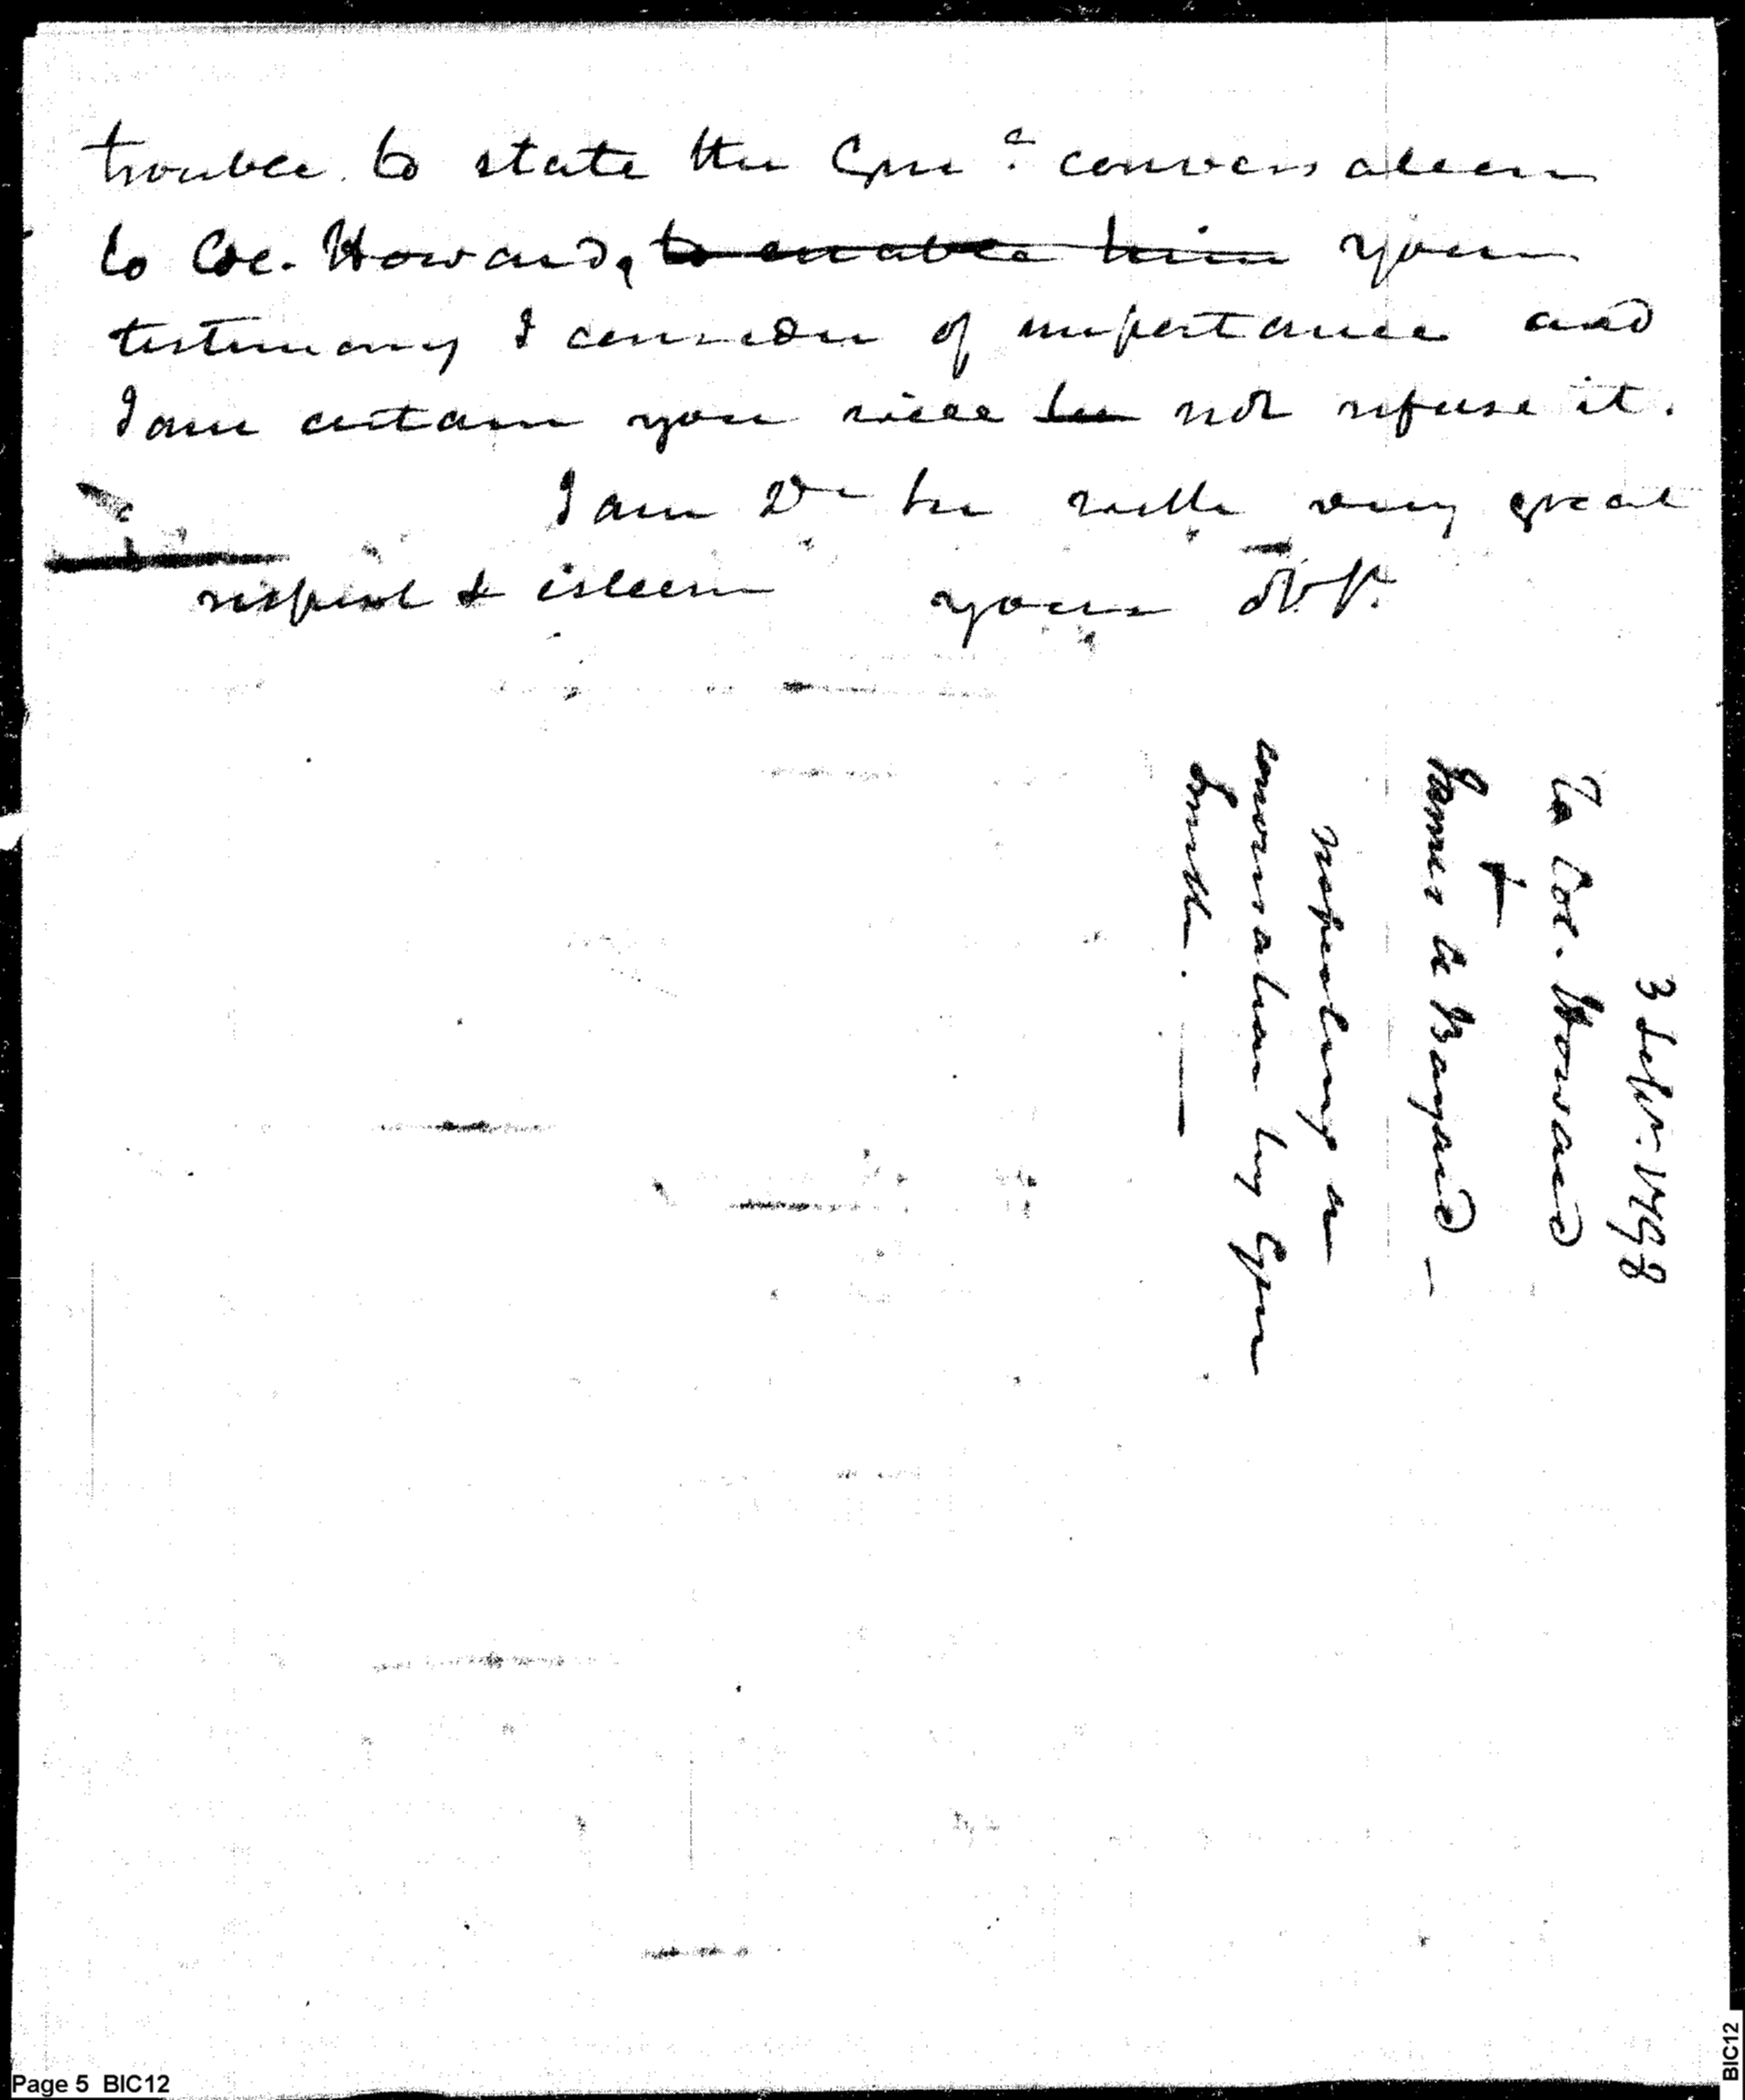 trouble to state the Genls conversation
to Col. Howard, to enable him your
testimony I consider of importance and
I am certain you will be not refuse it.
I am Dr Sir with very great
respect & esteem yours
3 Febr. 1798
To Col. Howard
&
James A Bayard —
respecting a
conversation by Genl
Smith. —
Page 5 BIC12
BIC12